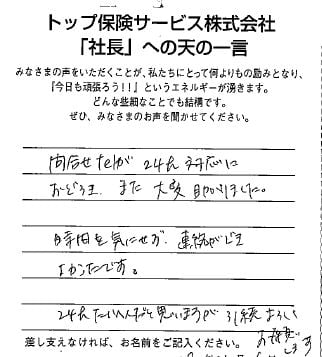 トップ保険サービス株式会社
「社長」への天の一言
みなさまの声をいただくことが、私たちにとって何よりもの励みとなり、
『今日も頑張ろう!!』というエネルギーが湧きます。
どんな些細なことでも結構です。
ぜひ、みなさまのお声を聞かせてください。
問合せtelが 24h対応に
おどろき、また 大変 助かりました。
時間を気にせず、連絡ができ
よかったです。
24h たいへんだと思いますが 引続きよろしく
お願い
します
差し支えなければ、お名前をご記入ください。